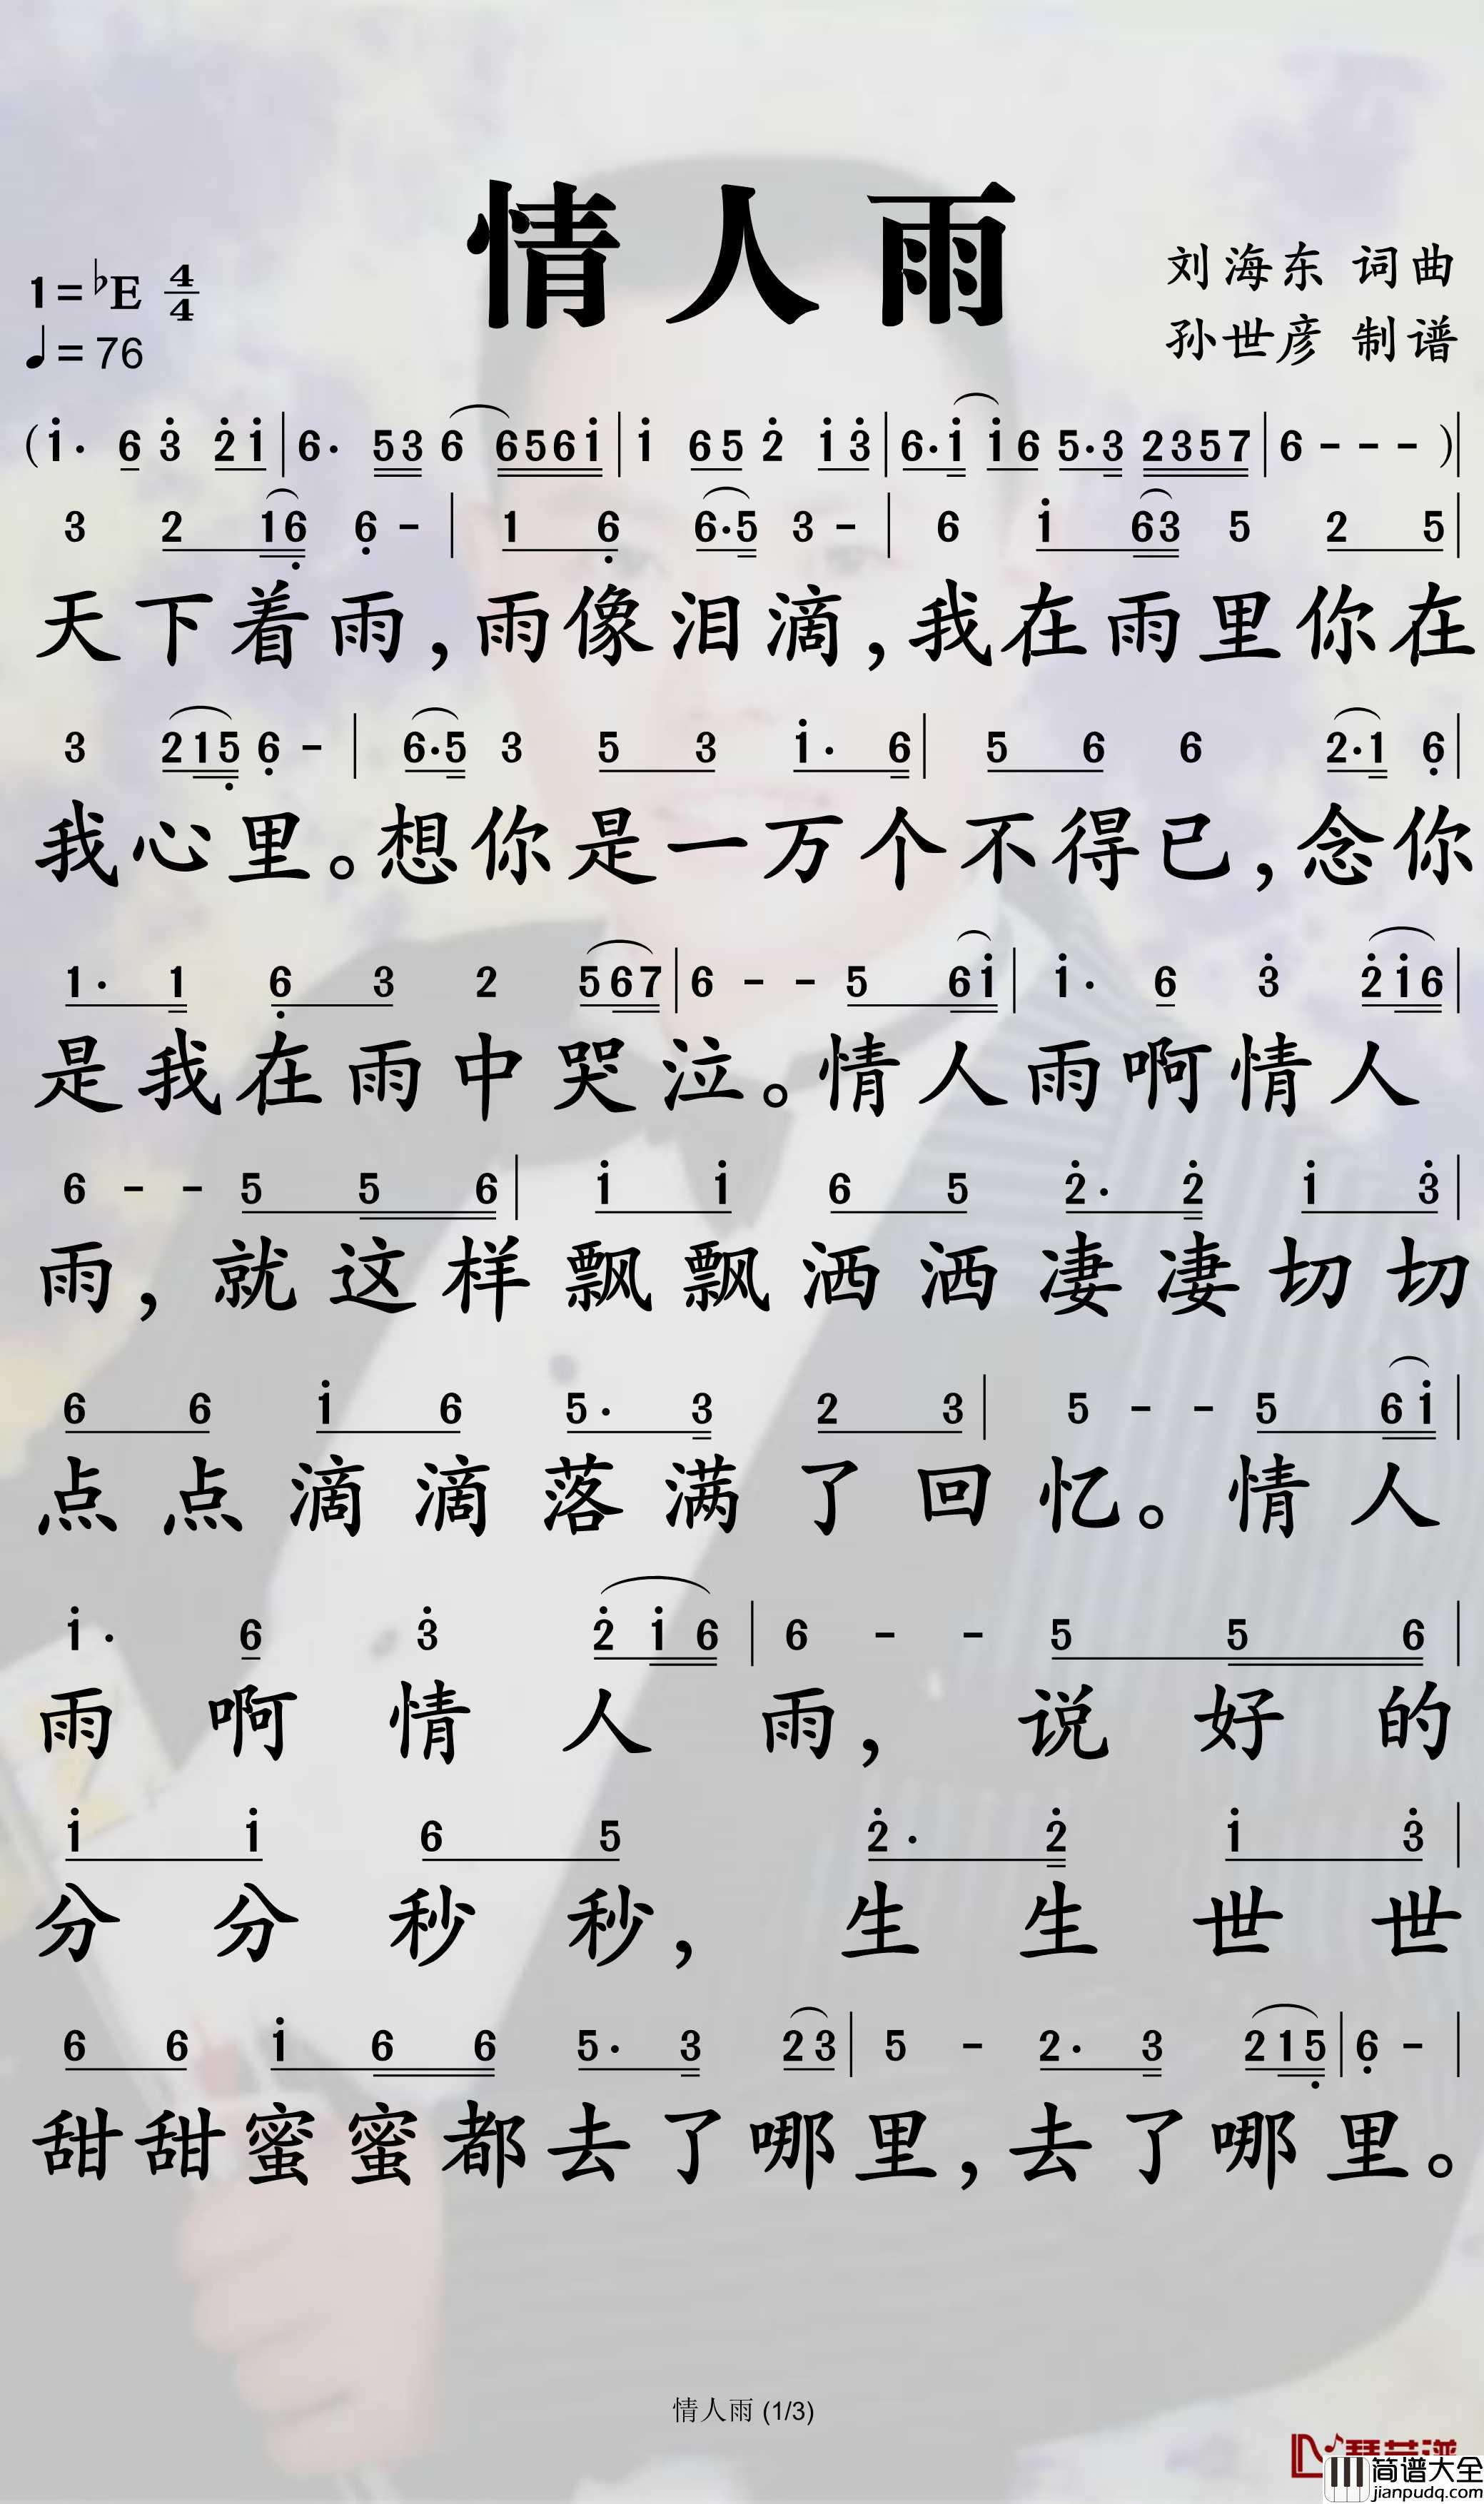 情人雨
1=♭E 4/4
♩=76
刘海东 词曲
孙世彦 制谱
(i· 6 3̇ 2̇ i | 6· 5 3 6 6 5 6 i | i 6 5 2̇ i 3̇ | 6· i i 6 5· 3 2 3 5 7 | 6 - - - ) |
3 2 1 6̣ 6̣ - | 1 6̣ 6· 5 3 - | 6 i 6 3 5 2 5 |
天下着雨,雨像泪滴,我在雨里你在
3 2 1 5̣ 6̣ - | 6· 5 3 5 3 i· 6 | 5 6 6 2· 1 6̣ |
我心里。想你是一万个不得已,念你
1· 1 6̣ 3 2 5 6 7 | 6 - - 5 6 i | i· 6 3̇ 2̇ i 6 |
是我在雨中哭泣。情人雨啊情人
6 - - 5 5 6 | i i 6 5 2̇· 2̇ i 3̇ |
雨,就这样飘飘洒洒凄凄切切
6 6 i 6 5· 3 2 3 | 5 - - 5 6 i |
点点滴滴落满了回忆。情人
i· 6 3̇ 2̇ i 6 | 6 - - 5 5 6 |
雨啊情人雨,说好的
i i 6 5 2̇· 2̇ i 3̇ |
分分秒秒,生生世世
6 6 i 6 6 5· 3 2 3 | 5 - 2· 3 2 1 5̣ | 6̣ - |
甜甜蜜蜜都去了哪里,去了哪里。
情人雨 (1/3)
简谱大全
jianpudq.com